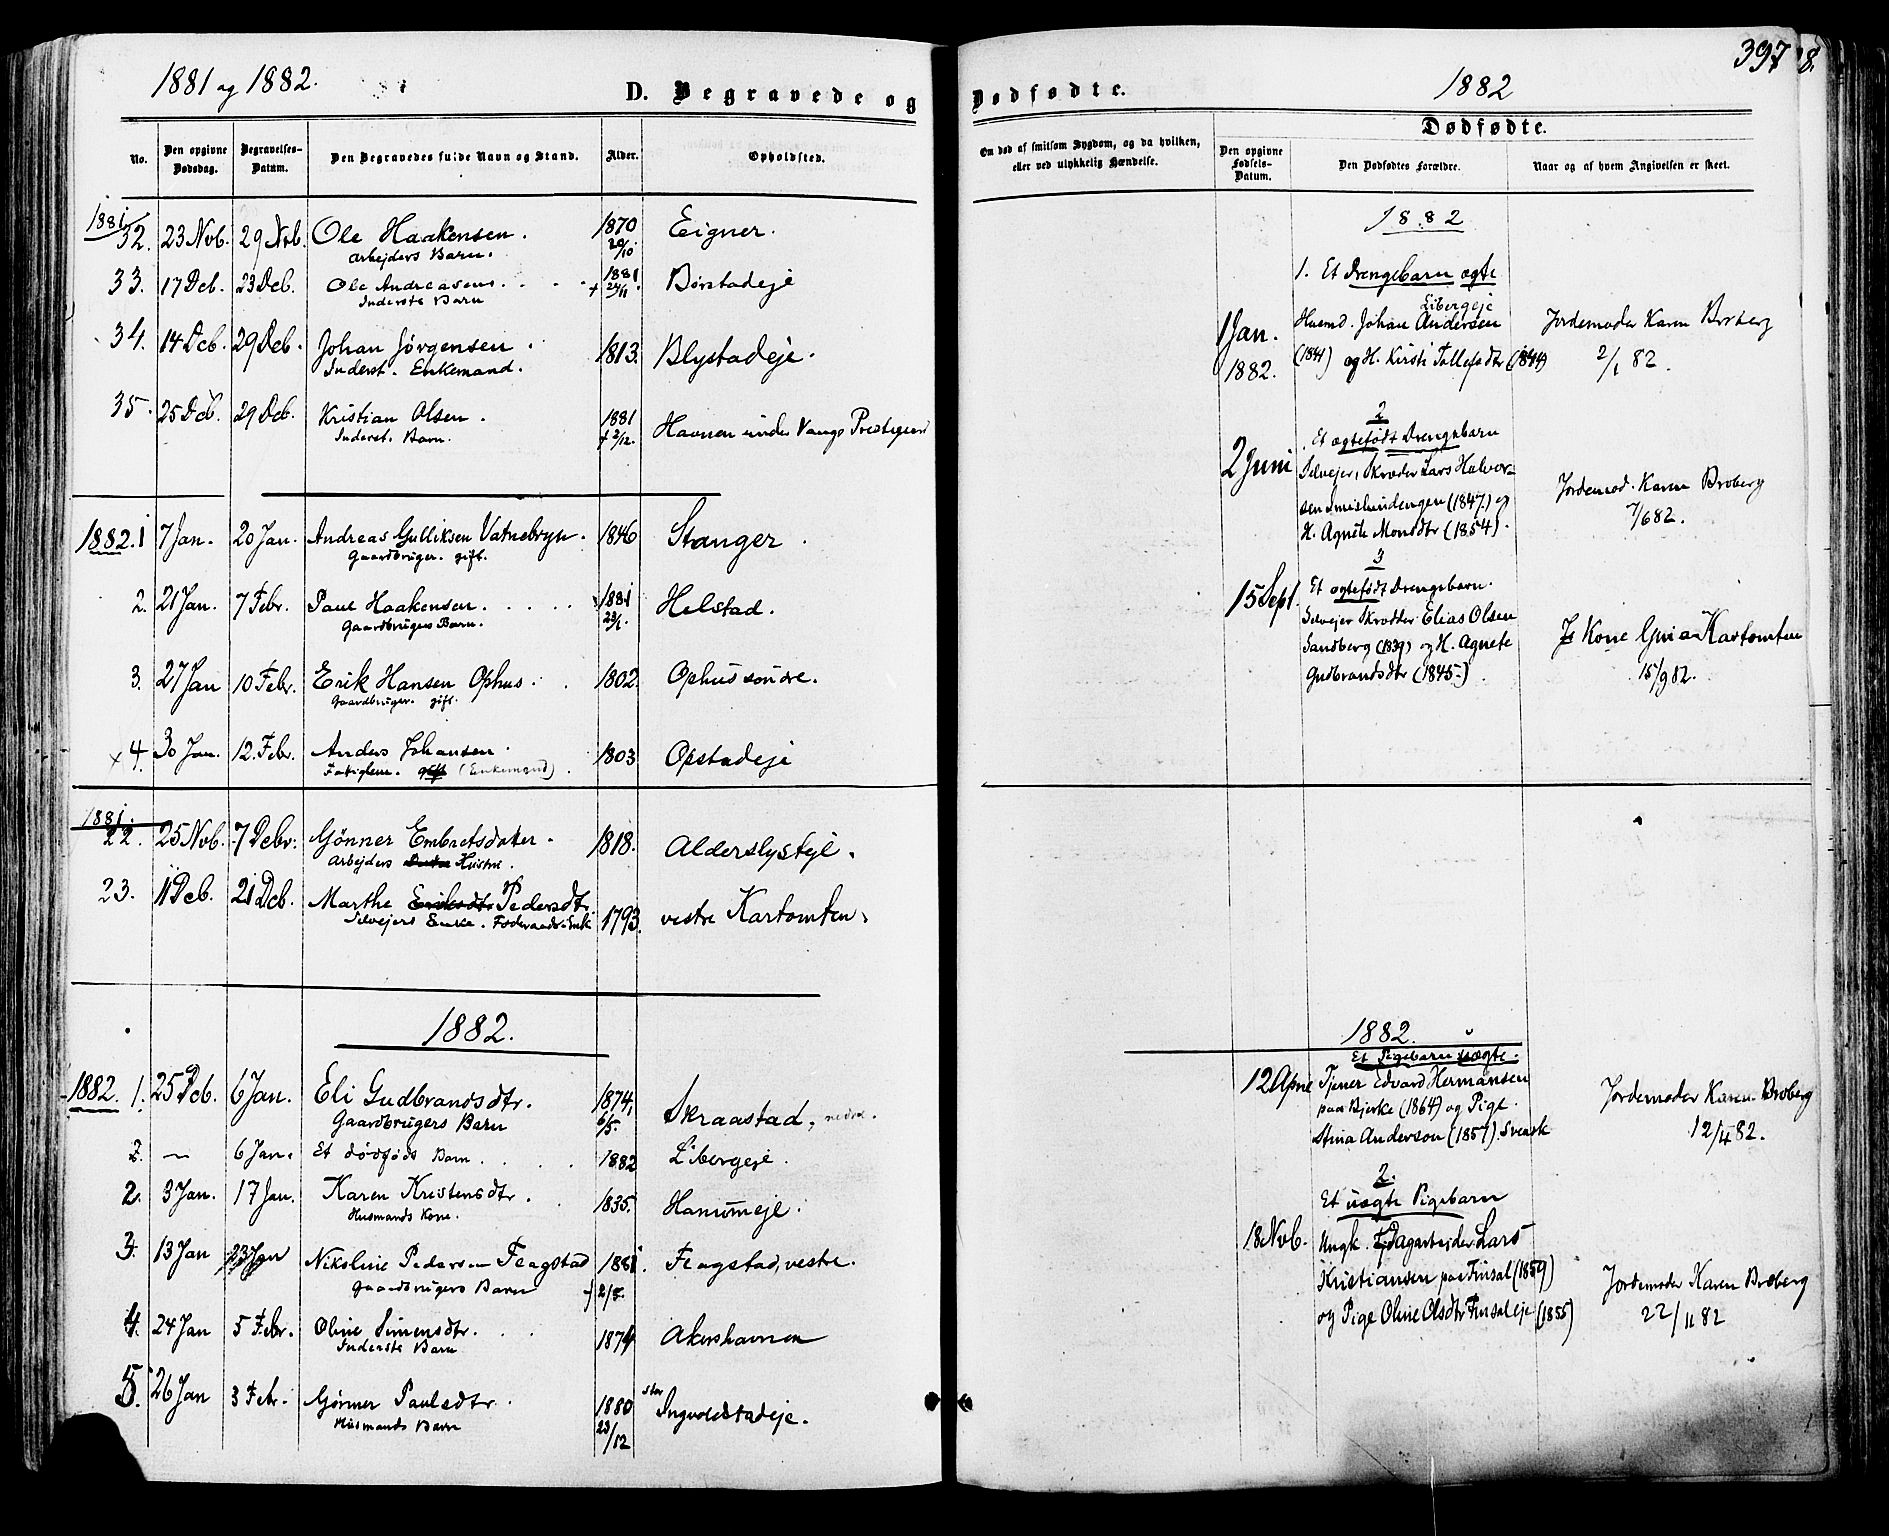 1881 og 1882.
D. Begravede og
No. Den opgivne Dødsdag. Begravelses-Datum. Den Begravedes fulde Navn og Stand. Alder. Opholdssted.
1881
32. 23 Nov. 29 Nov. Ole Haakensen. 1870 Eigner.
Arbejders Barn. 20/10
33. 17 Dcb. 23 Dcb. Ole Andreasens 1881 Børstadeje
Inderste Barn + 24/11
34. 14 Dcb. 29 Dcb. Johan Jørgensen 1813. Blystadeje.
Inderst. Enkemand.
35. 25 Dcb. 29 Dcb. Kristian Olsen. 1881 Havnen under Vangs Prestegaard
Inderst. Barn. + 2/12.
1882. 1 7 Jan. 20 Jan. Andreas Gulliksen Vatnebryn. 1846 Stanger.
Gaardbruger. gift.
2. 21 Jan. 7 Febr. Paul Haakensen. 1881 Helstad.
Gaardbrugers Barn. 23/1.
3. 27 Jan 10 Febr. Erik Hansen Ophus. 1802. Ophus søndre.
Gaardbruger. gift.
x 4. 30 Jan. 12. Febr. Anders Johansen. 1803 Opstadeje
Fattiglem. gift (Enkemand).
1881.
22. 25 Nov. 7 Debr. Gønner Embretsdater. 1818. Alderslysteje.
Arbejders Hustru.
23. 11 Dcb. 21 Dcb. Marthe Eriksdtr Pedersdtr 1793. vestre Kartomten.
Selvejers Enke. Føderaads Enke
1882.
1882. 1. 25 Dcb. 6 Jan. Eli Gudbrandsdtr. 1874, Skraastad, nedre.
Gaardbrugers Barn 6/5.
2. — 6 Jan. Et dødføds Barn 1882 Libergeje.
2. 3 Jan. 17 Jan. Karen Kristensdtr. 1835. Hanumeje.
Husmands Kone.
3. 13 Jan 23 Jan Nikoline Pedersen Flagstad 1881. Flagstad, vestre.
Gaardbrugers Barn
4. 24 Jan 5 Febr. Oline Simensdtr. 1874 Akershavnen
Inderste Barn
5. 26 Jan 3 Febr. Gønner Paulsdtr. 1880 Stor Ingvoldstadeje.
Husmands Barn 23/12
397 8.
Dødfødte.
1882
Om død af smitsom Sygdom, og da hvilken, eller ved ulykkelig Hændelse.
Dødfødte.
Den opgivne Fødsels-Datum. Den Dødfødtes Forældre. Naar og af hvem Angivelsen er skeet.
1882
1. Et Drengebarn ægte
Libergeje
1 Jan. Husmd. Johan Andersen Jordemoder Karen Broberg
1882. (1841) og H. Kirsti Tollefsdtr (1844) 2/1 82.
2
Et ægtefødt Drengebarn
2 Juni Selvejer, Skræder Lars Halvor-
sen Smislundengen (1847.) og Jordemod. Karen Broberg
H. Agnete Monsdtr (1854). 7/6 82.
3
Et ægtefødt Drengebarn.
15 Sept. Selvejer Skrædder Elias Olsen
Sandberg (1839) og H. Agnete Kone Kartomten
Gudbrandsdtr (1845.) 15/9 82.
1882.
Et Pigebarn uægte.
12 April Tjener Edvard Hermansen Jordemoder Karen Broberg
paa Bjerke (1864) og Pige
Stina Anderson (1857). Svensk 12/4 82.
2.
Et uægte Pigebarn
18 Nov. Ungk. Dagarbeider Lars
Kristiansen paa Finsal (1859) Jordemoder Karen Broberg
og Pige Oline Olsdtr Finsaleje (1855) 22/11 82